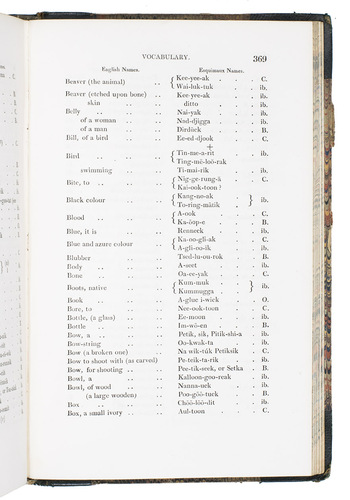 VOCABULARY. 369
English Names. Esquimaux Names.
Beaver (the animal) .. { Kee-yee-ak . . C.
Wai-luk-tuk . . ib.
Beaver (etched upon bone) .. Kee-yee-ak . . ib.
skin .. .. ditto . . ib.
Belly .. .. Nai-yak . . ib.
of a woman .. .. Nad-djigga . . ib.
of a man .. .. Dirdöek . . B.
Bill, of a bird .. .. Ee-ed-djook . . C.
+
Bird .. .. .. { Tin-me-a-rit . . ib.
Ting-mē-löö-rak
swimming .. .. Ti-mai-rik . . ib.
Bite, to .. .. .. { Nig-ge-rung-ä . . C.
Kai-ook-toon ?
Black colour .. .. { Kang-ne-ak . } ib.
To-ring-mātik .
Blood .. .. .. { A-ook . . C.
Ka-öop-e . . B.
Blue, it is .. .. Renneek . . ib.
Blue and azure colour .. { Ka-oo-gli-ak . . C.
A-gli-oo-ik . . ib.
Blubber .. .. Tsed-lu-ou-rok . B.
Body .. .. .. A-seet . . ib.
Bone .. .. .. Oa-ee-yak . . C.
Boots, native .. .. { Kum-muk . } ib.
Kummugga .
Book .. .. .. A-glue i-wick . O.
Bore, to .. .. Nee-ook-toon . C.
Bottle, (a glass) .. .. Ee-moon . . ib.
Bottle .. .. .. Im-wö-en . . B.
Bow, a .. .. .. Petik, sik, Pitik-shi-a . ib.
Bow-string .. .. Oo-kwak-ta . . ib.
Bow (a broken one) .. Na wik-tük Petiksik . C.
Bow to shoot with (as carved) Pe-teik-ta-rik . ib.
Bow, for shooting .. .. Pee-tik-seek, or Setka . B.
Bowl, a .. .. Kalloon-goo-reak . ib.
Bowl, of wood .. .. Nanna-uek . . ib.
(a large wooden) .. Poo-göö-tuek . B.
Box .. .. .. Chöö-löö-dit . . ib.
Box, a small ivory .. .. Aul-toon . . C.